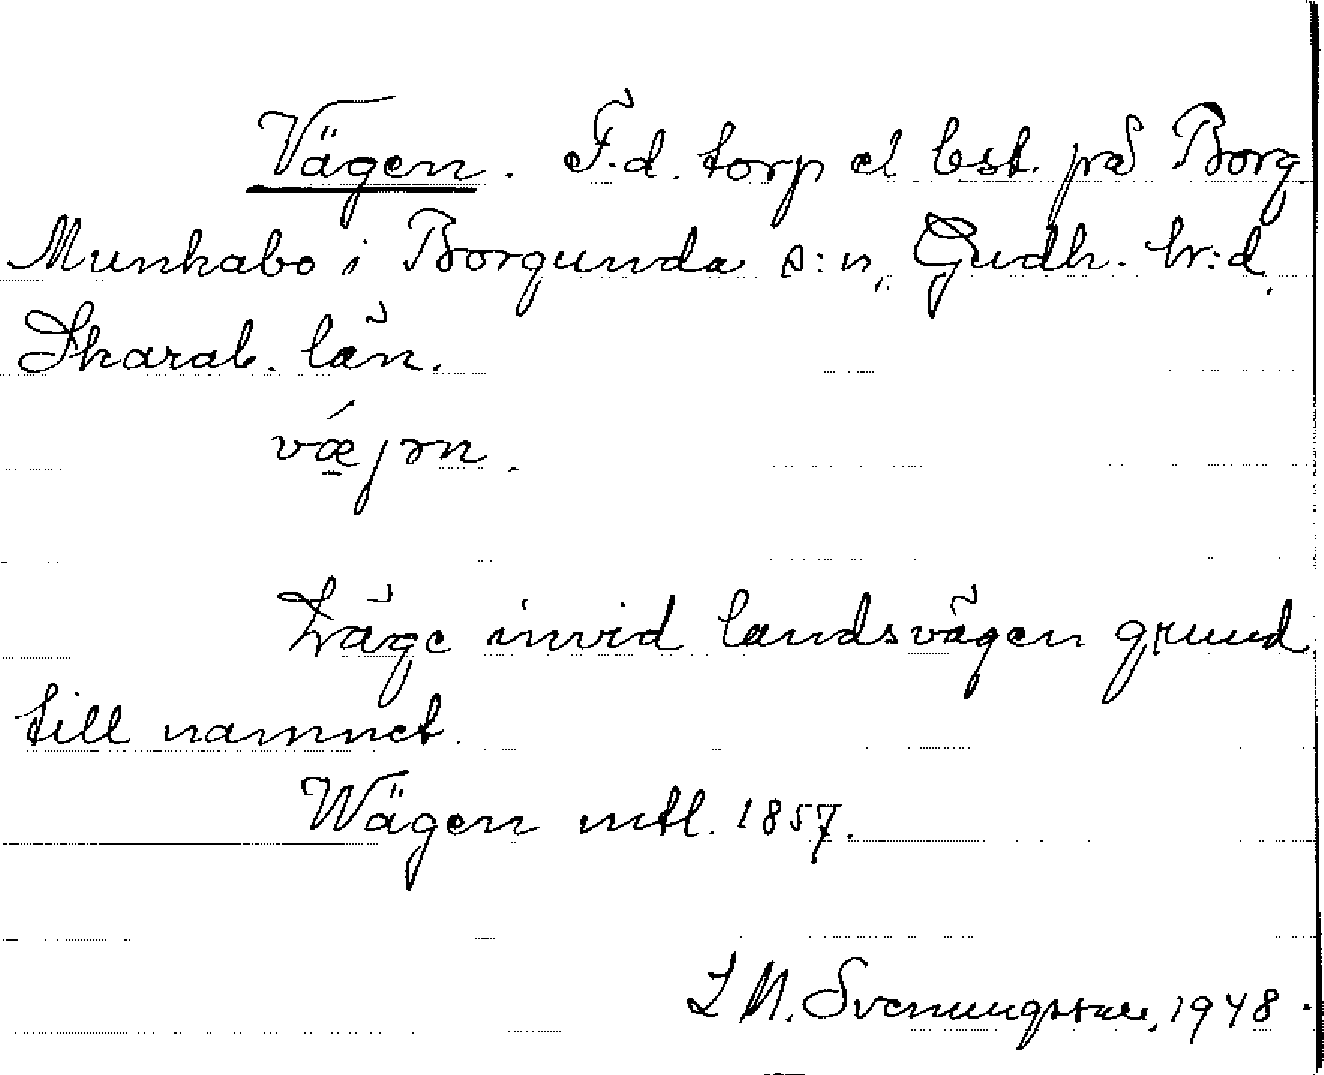 Vägen. F.d. torp el bst. på Borg.
Munkabo i Borgunda s:n, Gudh. hr:d,
Skarab. län.
vǽ̠jən.
Läge invid landsvägen grund
till namnet.
Wägen mtl. 1857.
L M. Svenungsson, 1948.